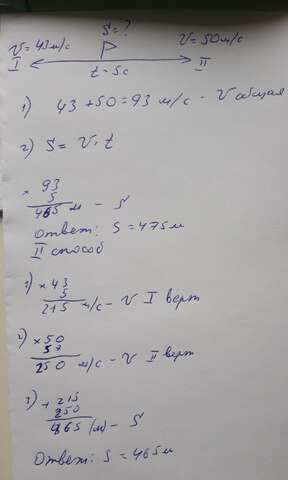 S=?
V=43м/с V=50м/с
I t=5с II
1) 43+50=93 м/с - V общая
2) S= V·t
× 93
5
465 м - S
Ответ: S=475м
II способ
1) × 43
5
215 м/с - V I верт
2) × 50
5
250 м/с - V II верт
3) + 215
250
465 (м) - S
Ответ: S=465м